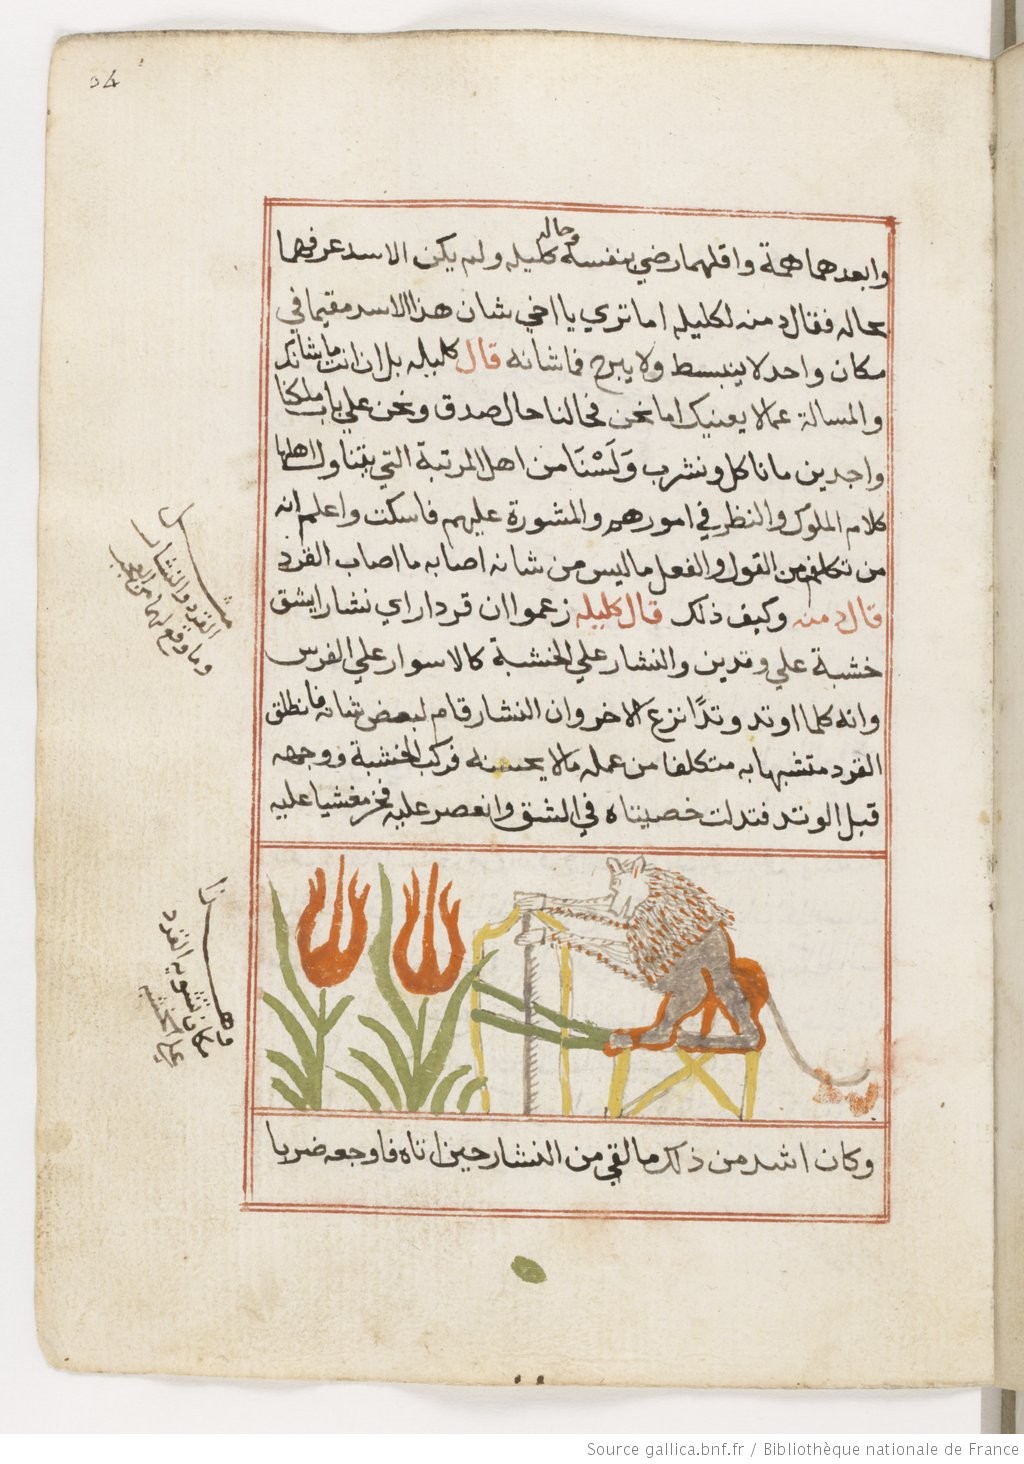 34
وحاله
وابعدهما همة واقلهما رضي بنفسه كليله ولم يكن الاسد عرفهما
بحاله فقال دمنه لكليله اما تري يا اخي شان هذا الاسد مقيما في
مكان واحد لا ينبسط ولا يبرح فما شانه قال كليله بل ان انت ما شانك
والمسالة عما لا يعنيك اما نحن فحالنا حال صدق ونحن علي باب ملكنا
واجدين ما ناكل ونشرب وَلَسْنَا من اهل المرتبة التي يتناول اهلها
كلام الملوك والنظر في امورهم والمشورة عليهم فاسكت واعلم انه
من تكلف من القول والفعل ما ليس من شانه اصابه ما اصاب القرد
قال دمنه وكيف ذلك قال كليله زعموا ان قردا راي نشارا يشق
خشبة علي وتدين والنشار علي الخشبة كالاسوار علي الفرس
وانه كلما اوتد وتدًا نزع الاخر وان النشار قام لبعض شانه فانطلق
القرد متشبها به متكلفا من عمله ما لا يحسنه فركب الخشبة ووجهه
قبل الوتد فتدلت خصيتاه في الشق وانعصر عليه فخر مغشيا عليه
مثل
القرد والنشار
وما وقع لهما من العجب
وهذا
مكان تشويه القرد
علي الخشبه
وكان اشد من ذلك ما لقي من النشار حين اتاه فاوجعه ضربا
Source gallica.bnf.fr / Bibliothèque nationale de France